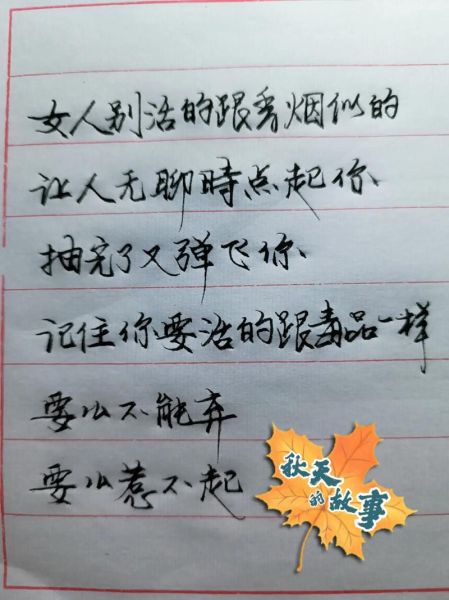 女人别活的跟香烟似的
让人无聊時点起你、
抽完了又弹飞你、
记住你要活的跟毒品一样
要么不能弃
要么惹不起
秋天
的故事